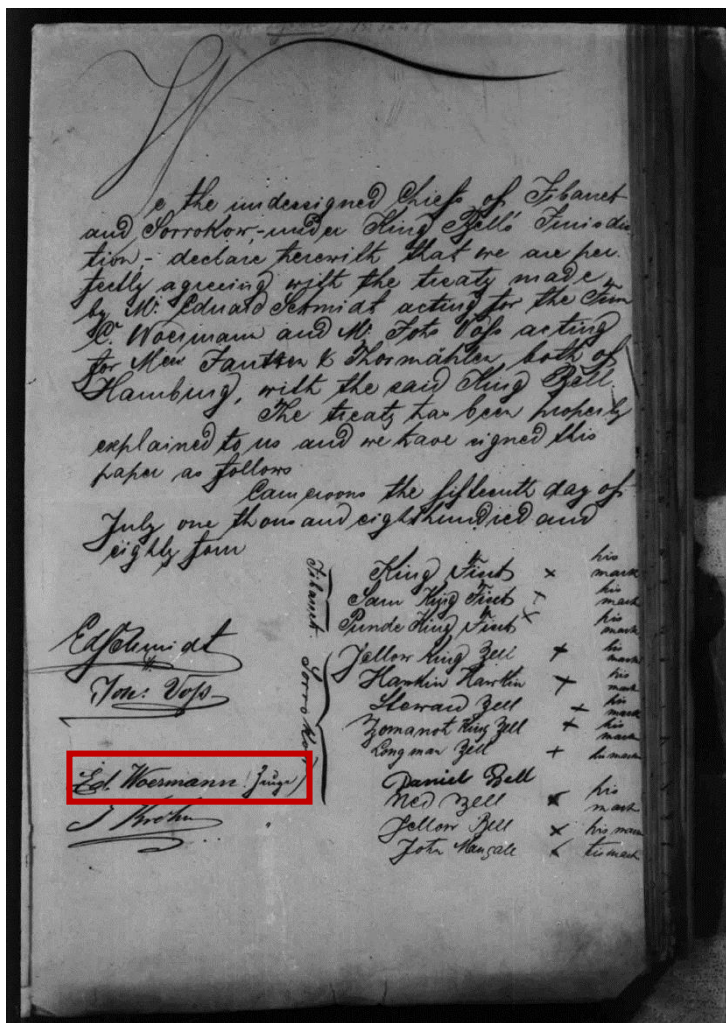 We the undersigned Chiefs of Tibanet
and Sorrokow, under King Bell's Jurisdic
tion, - declare herewith that we are per
fectly agreeing with the treaty made
by Mr. Eduard Schmidt acting for the Firm
C. Woermann and Mr. Johs Voss acting
for Messrs Jantzen & Thormählen, both of
Hamburg, with the said King Bell.
The treaty has been properly
explained to us and we have signed this
paper as follows
Cameroons the fifteenth day of
July one thousand eighthundred and
eighty four
Tibanet
King First × his mark
Sam King First × his mark
Punde King First × his mark
EdSchmidt
Sorro Kow
Jellow King Bell + his mark
Johs: Voss
Hankin Hawkin + his mark
Steward Bell × his mark
Zomanot King Bell × his mark
Longman Bell + his mark
Ed. Woermann (Zeuge)
Daniel Bell
Ned Bell × his mark
J Krohn
Jellow Bell × his mark
John Mangale × his mark